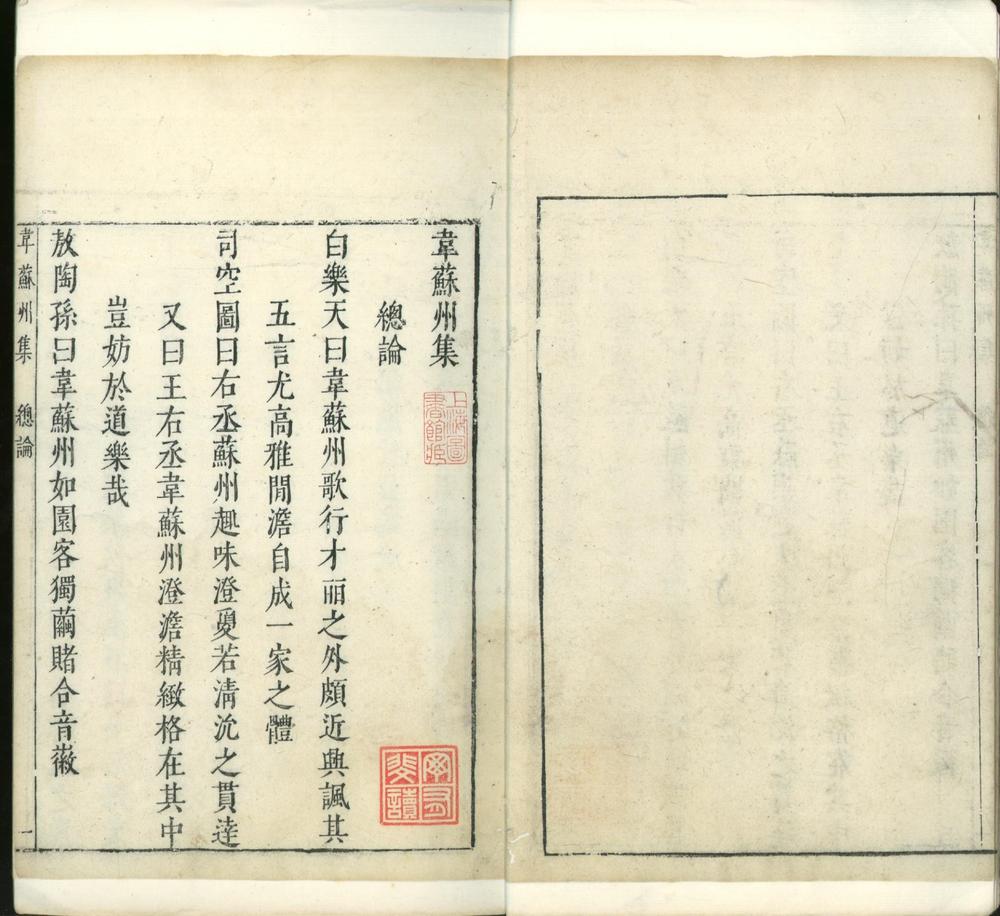 韋蘇州集
上海圖書館藏
總論
白樂天曰韋蘇州歌行才丽之外頗近興諷其
五言尤高雅閒澹自成一家之體
司空圖曰右丞蘇州趣味澄敻若清沇之貫逹
又曰王右丞韋蘇州澄澹精緻格在其中
豈妨於道樂哉
敖陶孫曰韋蘇州如園客獨繭賭合音徽
韋蘇州集 總論 一